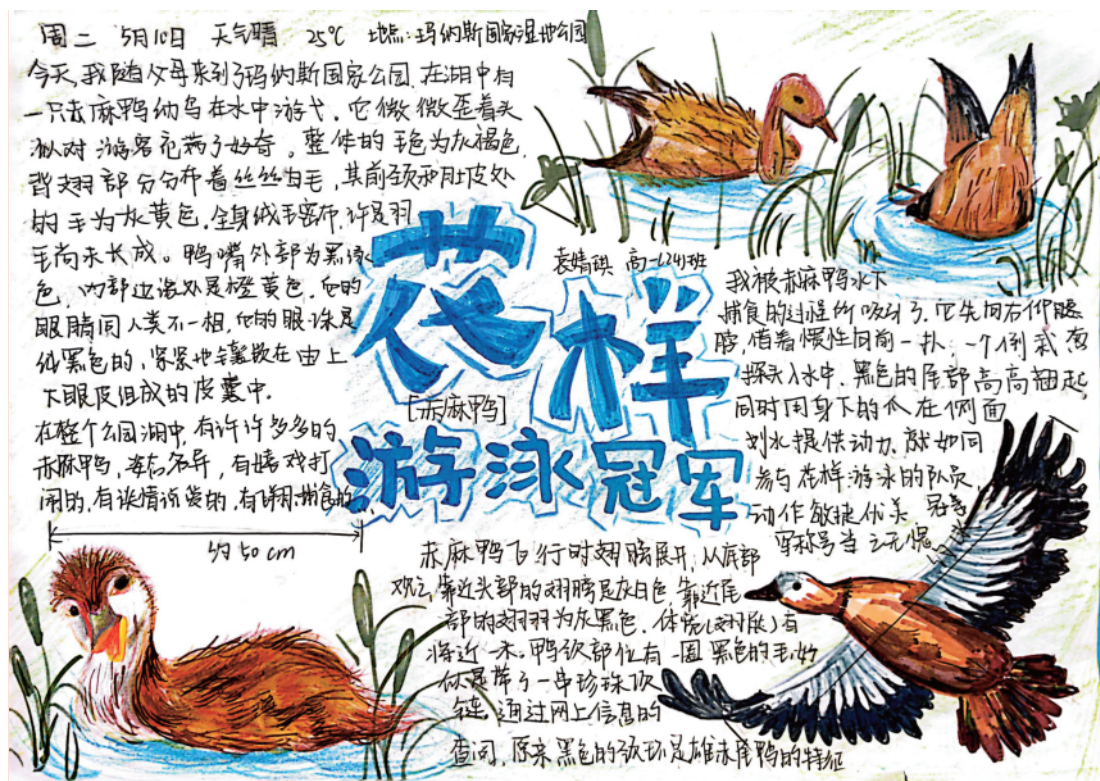 周二 5月10日 天气晴 25℃ 地点:玛纳斯国家湿地公园
今天,我随父母来到了玛纳斯国家公园,在湖中有
一只赤麻鸭幼鸟在水中游弋,它微微歪着头
似对游客充满了好奇。整体的毛色为灰褐色,
背翅部分分布着丝丝白毛,其前颈和肚皮处
的毛为灰黄色,全身绒毛密布,许是羽
毛尚未长成。鸭嘴外部为黑
色,内部边沿处是橙黄色,它的
眼睛同人类不一相,他的眼珠是
纯黑色的,紧紧地镶嵌在由上
下眼皮组成的皮囊中.
在整个公园湖中,有许许多多的
赤麻鸭,姿态各异,有嬉戏打
闹的,有谈情说爱的,有飞翔捕食的
约50cm
花样
游泳冠军
[赤麻鸭]
袁婧琪 高一(24)班
我被赤麻鸭水下
捕食的过程所吸引了,它先向右伸腰
,借着惯性向前一扑,一个倒栽葱
探头入水中,黑色的尾部高高翘起,
同时用身下的爪在侧面
划水提供动力,就如同
参与花样游泳的队员,
动作敏捷优美 冠
军称号当之无愧
赤麻鸭飞行时翅膀展开,从底部
观之,靠近头部的翅膀是灰白色,靠近尾
部的翅羽为灰黑色,体宽(翅展)有
将近一米。鸭颈部位有一圈黑色的毛,好
似是带了一串珍珠项
链。通过网上信息的
查问,原来黑色的颈环是雄赤麻鸭的特征